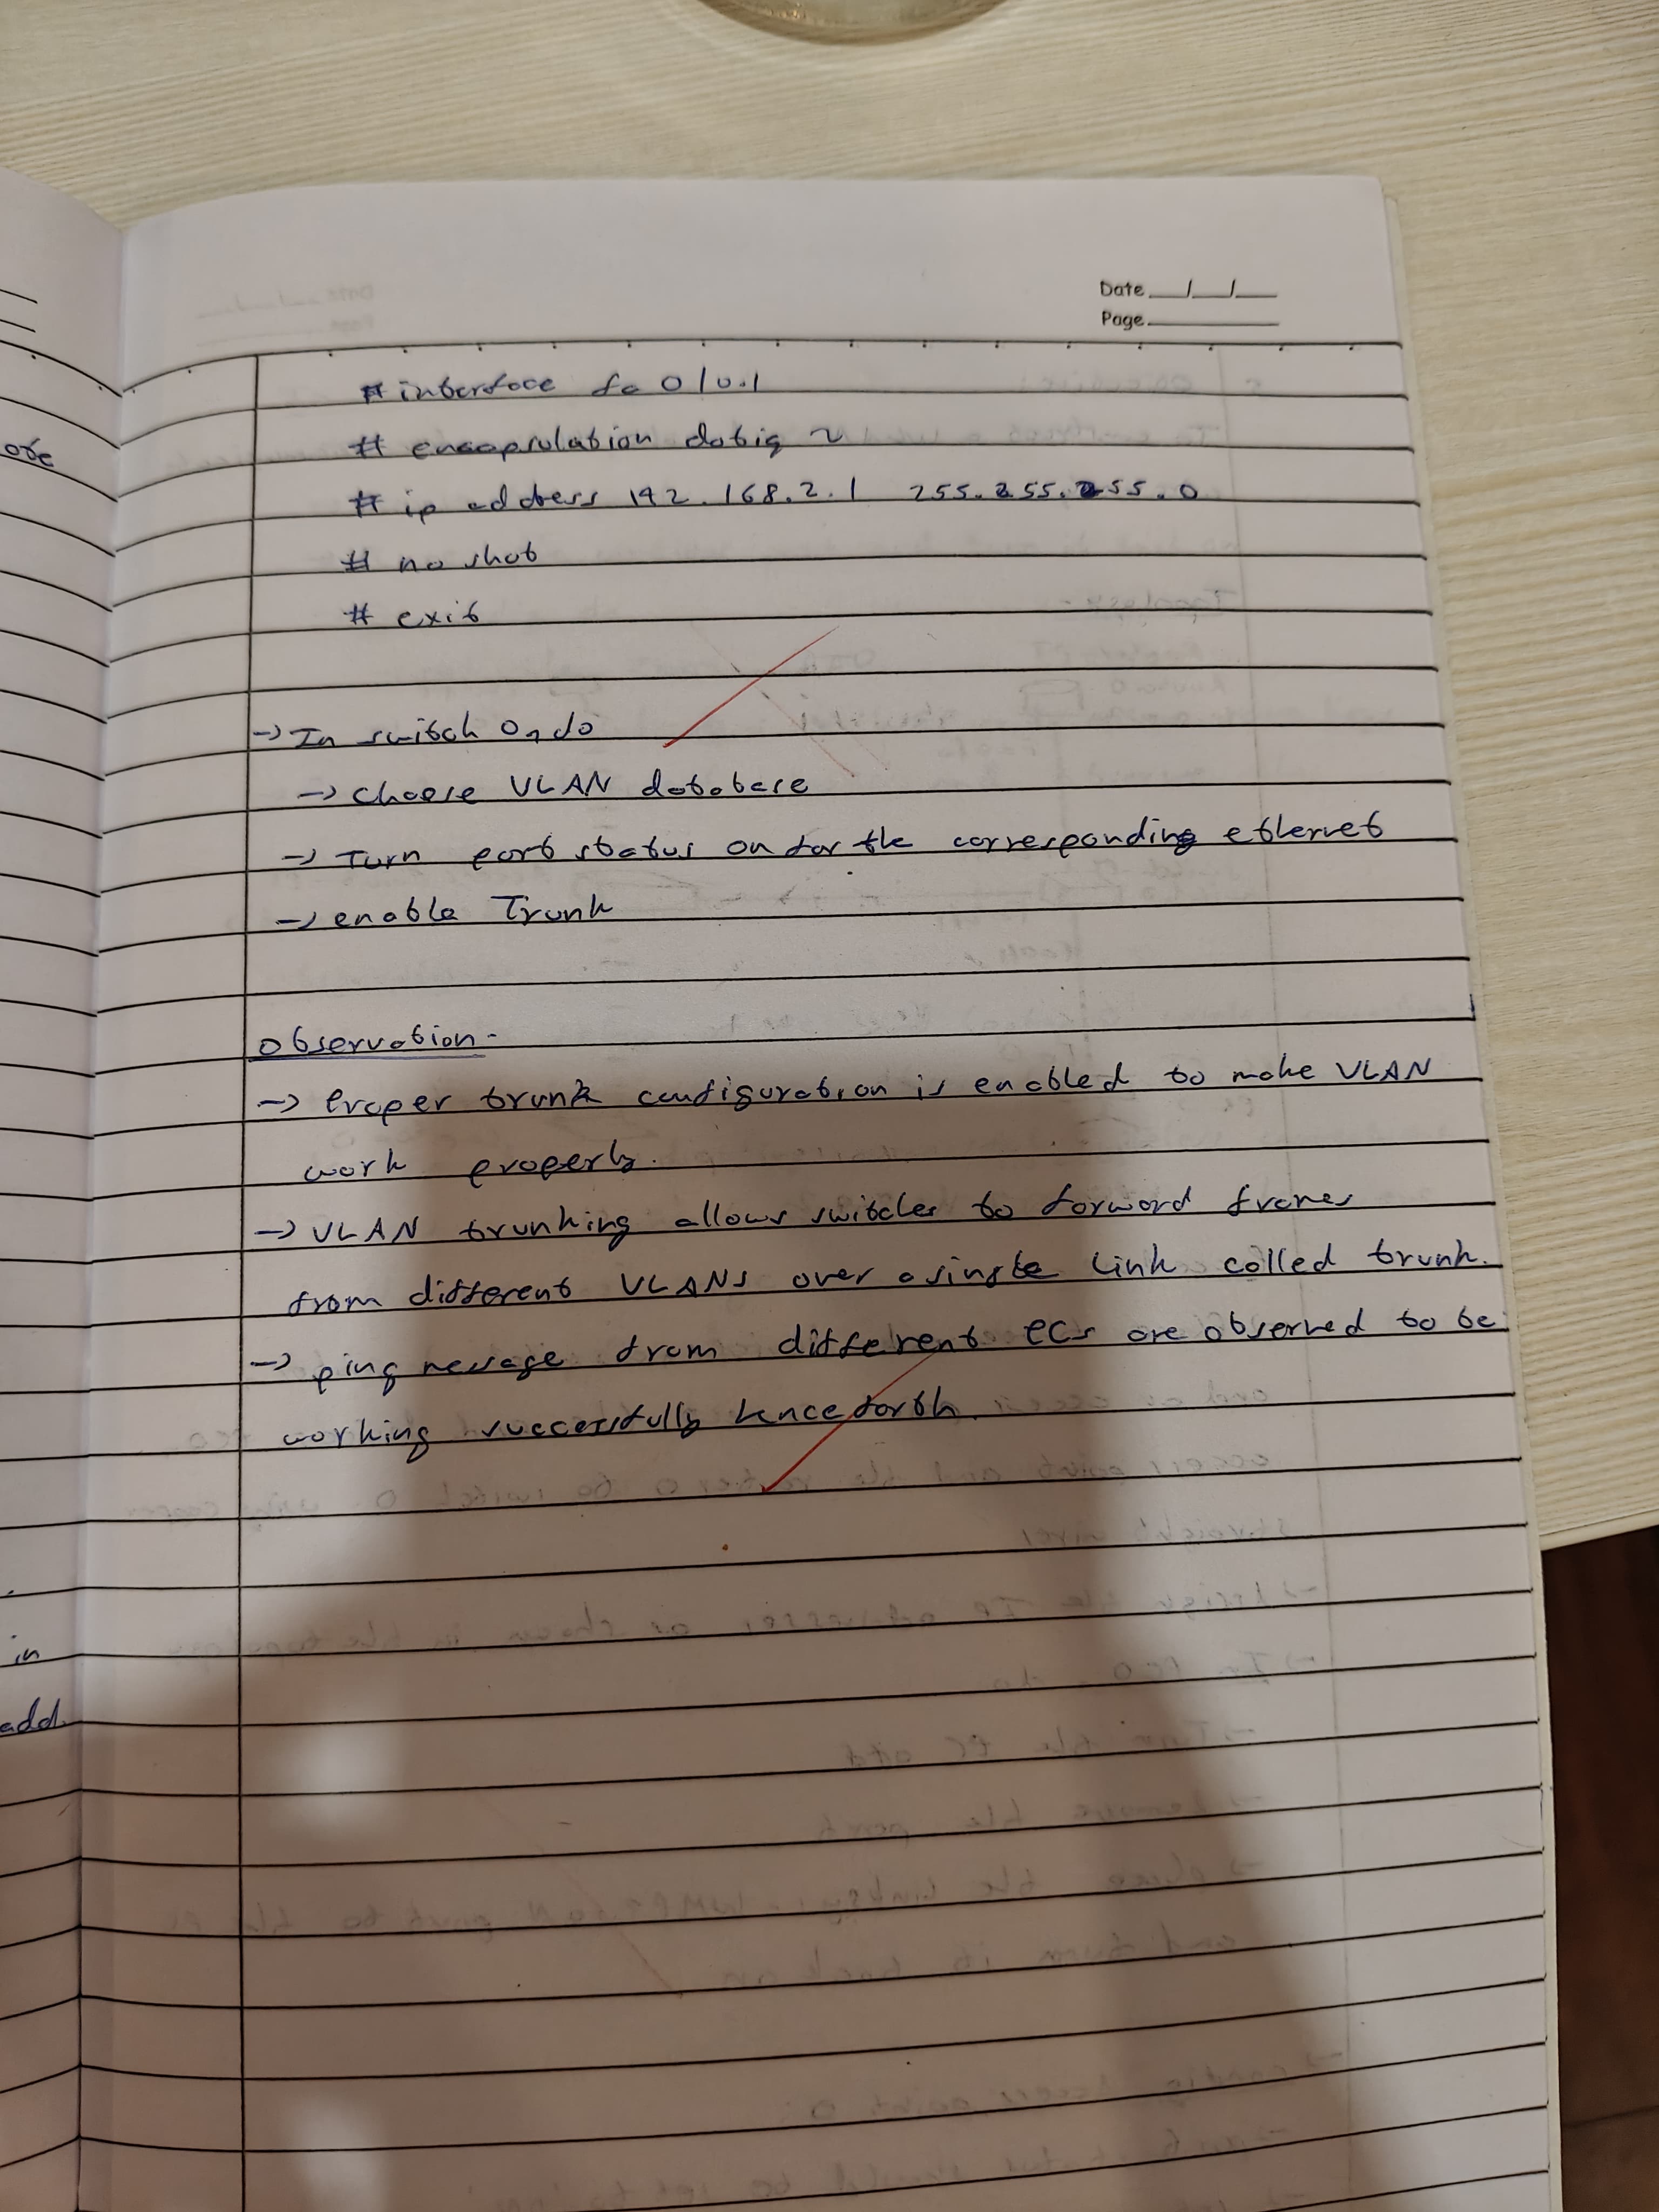 Date __/__/__
Page
# interface fa 0/0.1
# encapsulation dot1q 2
# ip address 192.168.2.1 255.255.255.0
# no shut
# exit
→ In switch 0, do
→ choose VLAN database
→ Turn port status on for the corresponding ethernet
→ enable Trunk
Observation -
→ Proper trunk configuration is enabled to make VLAN
work properly.
→ VLAN trunking allows switches to forward frames
from different VLANs over a single link called trunk.
→ ping message from different PCs are observed to be
working successfully henceforth.
ore
in
add